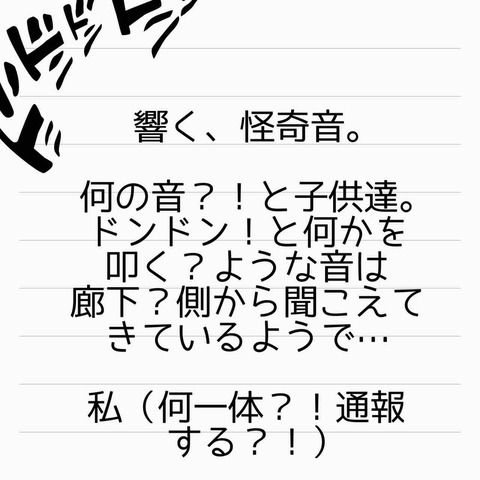 ドンドンドン
響く、怪奇音。
何の音？！と子供達。
ドンドン！と何かを
叩く？ような音は
廊下？側から聞こえて
きているようで…
私（何一体？！通報
する？！）